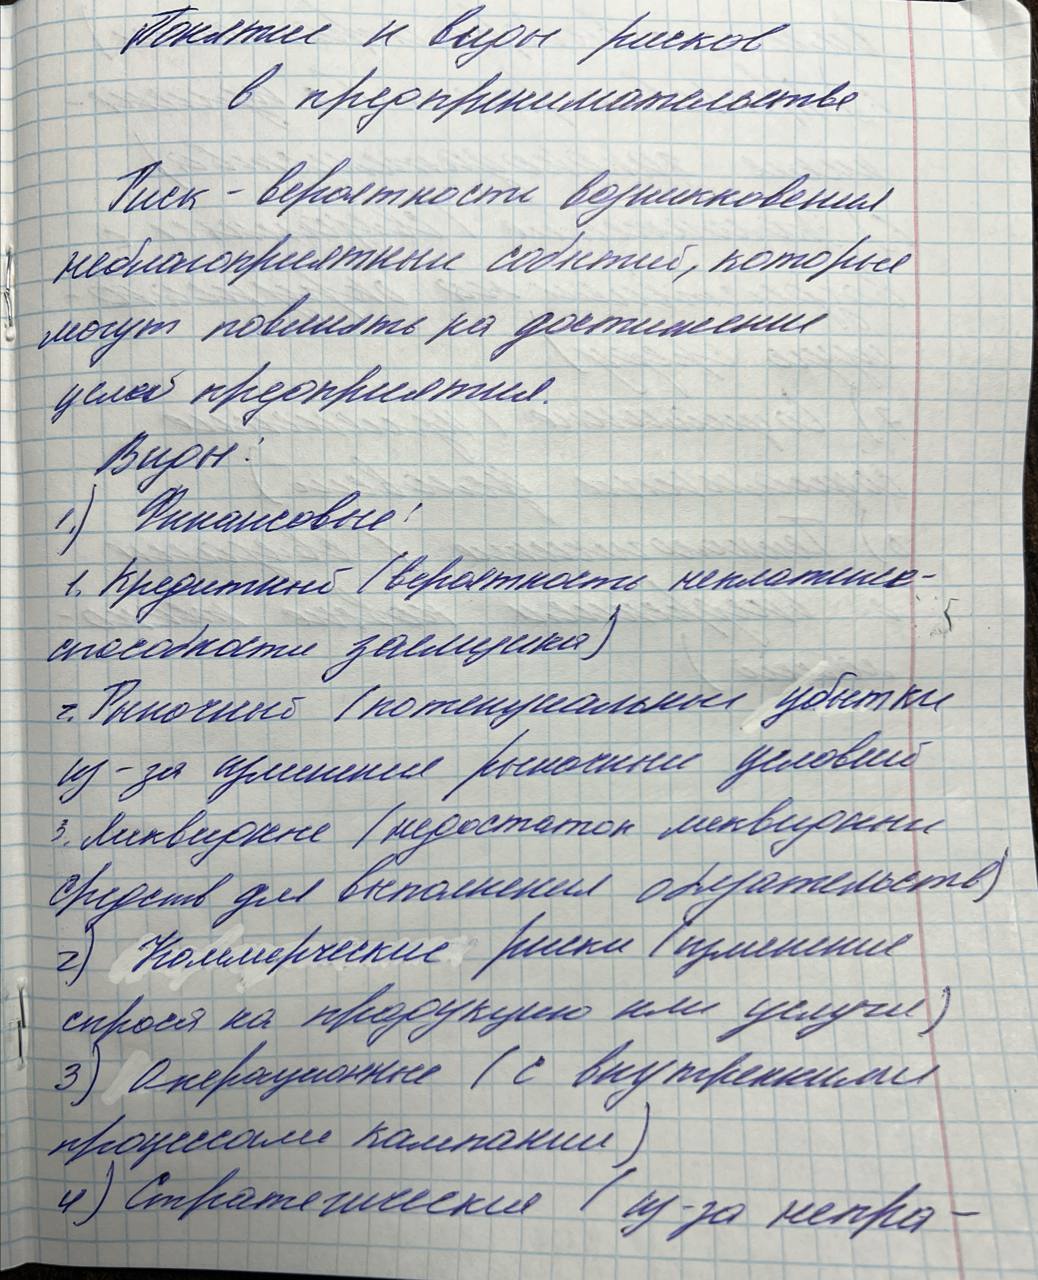 Понятие и виды рисков
в предпринимательстве
Риск - вероятность возникновения
неблагоприятных событий, которые
могут повлиять на достижение
целей предприятия.
Виды:
1.) Финансовые:
1. Кредитный (вероятность неплатеже-
способности заемщика)
2. Рыночный (потенциальные убытки
из-за изменения рыночных условий
3. Ликвидные (недостаток ликвидных
средств для выполнения обязательств)
2) Коммерческие риски (изменение
спроса на продукцию или услуги)
3) Операционные (с внутренними
процессами компании)
4) Стратегические (из-за непра-